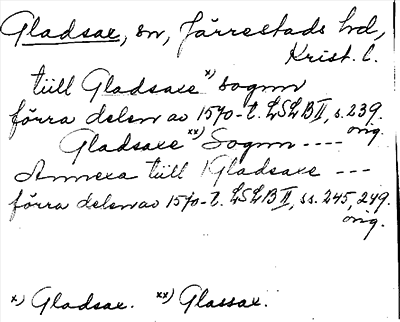 Gladsax, sn, Järrestads hd,
Krist. l.
tiill Gladsaxe *) sognn
förra delen av 1570-t. LSLB II, s. 239.
orig.
Gladsaxe **) Sognn ----
Annexa tiill Kladsaxe ---
förra delen av 1570-t. LSLB II, ss. 245, 249.
orig.
x) Gladsax. xx) Glassax.